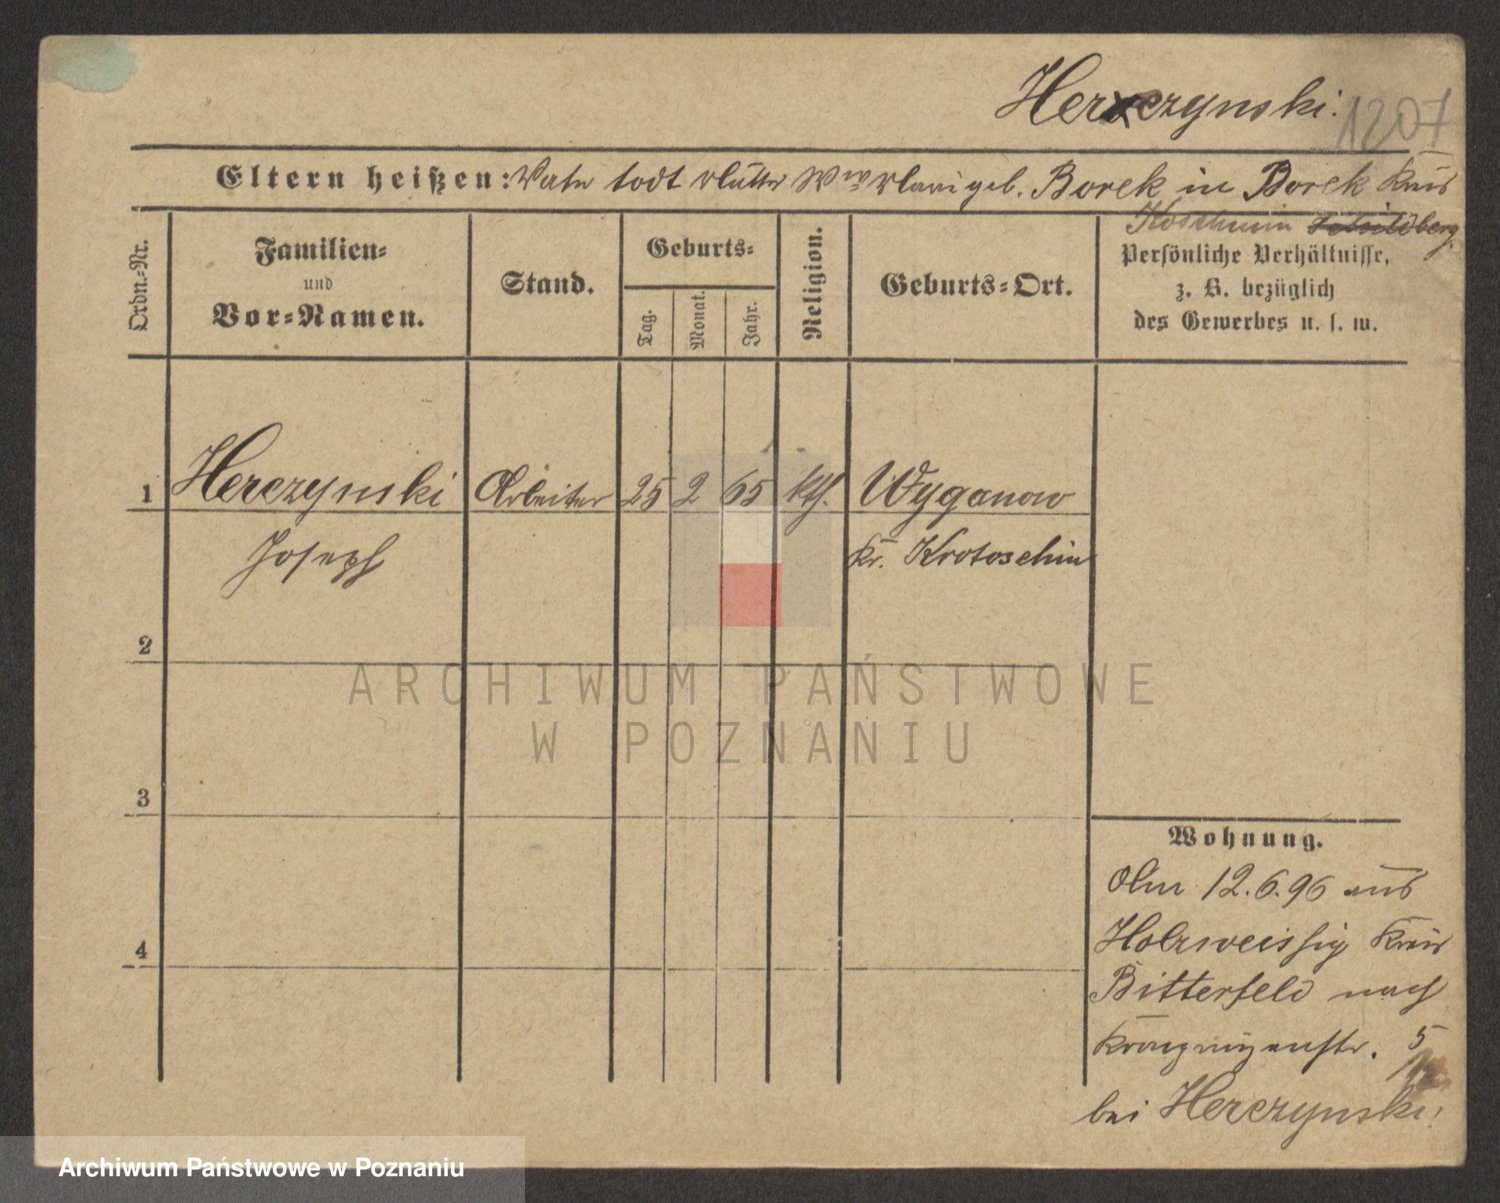 Herczynski.
1207
Eltern heißen: Vater todt Mutter Ww Marie geb. Borek in Borek Kreis
Koschmin
Ordn.-Nr.
Familien-
und
Vor-Namen.
Stand.
Geburts-
Tag.
Monat.
Jahr.
Religion.
Geburts-Ort.
Persönliche Verhältnisse,
z. B. bezüglich
des Gewerbes u. s. w.
1 Herczynski Arbeiter 25 2 65 kth. Wyganow
Joseph Kr. Krotoschin
2
3
4
Wohnung.
Am 12.6.96 aus
Holzweissig Kreis
Bitterfeld nach
Kronprinzenstr. 5
bei Herczynski.
ARCHIWUM PAŃSTWOWE
W POZNANIU
Archiwum Państwowe w Poznaniu